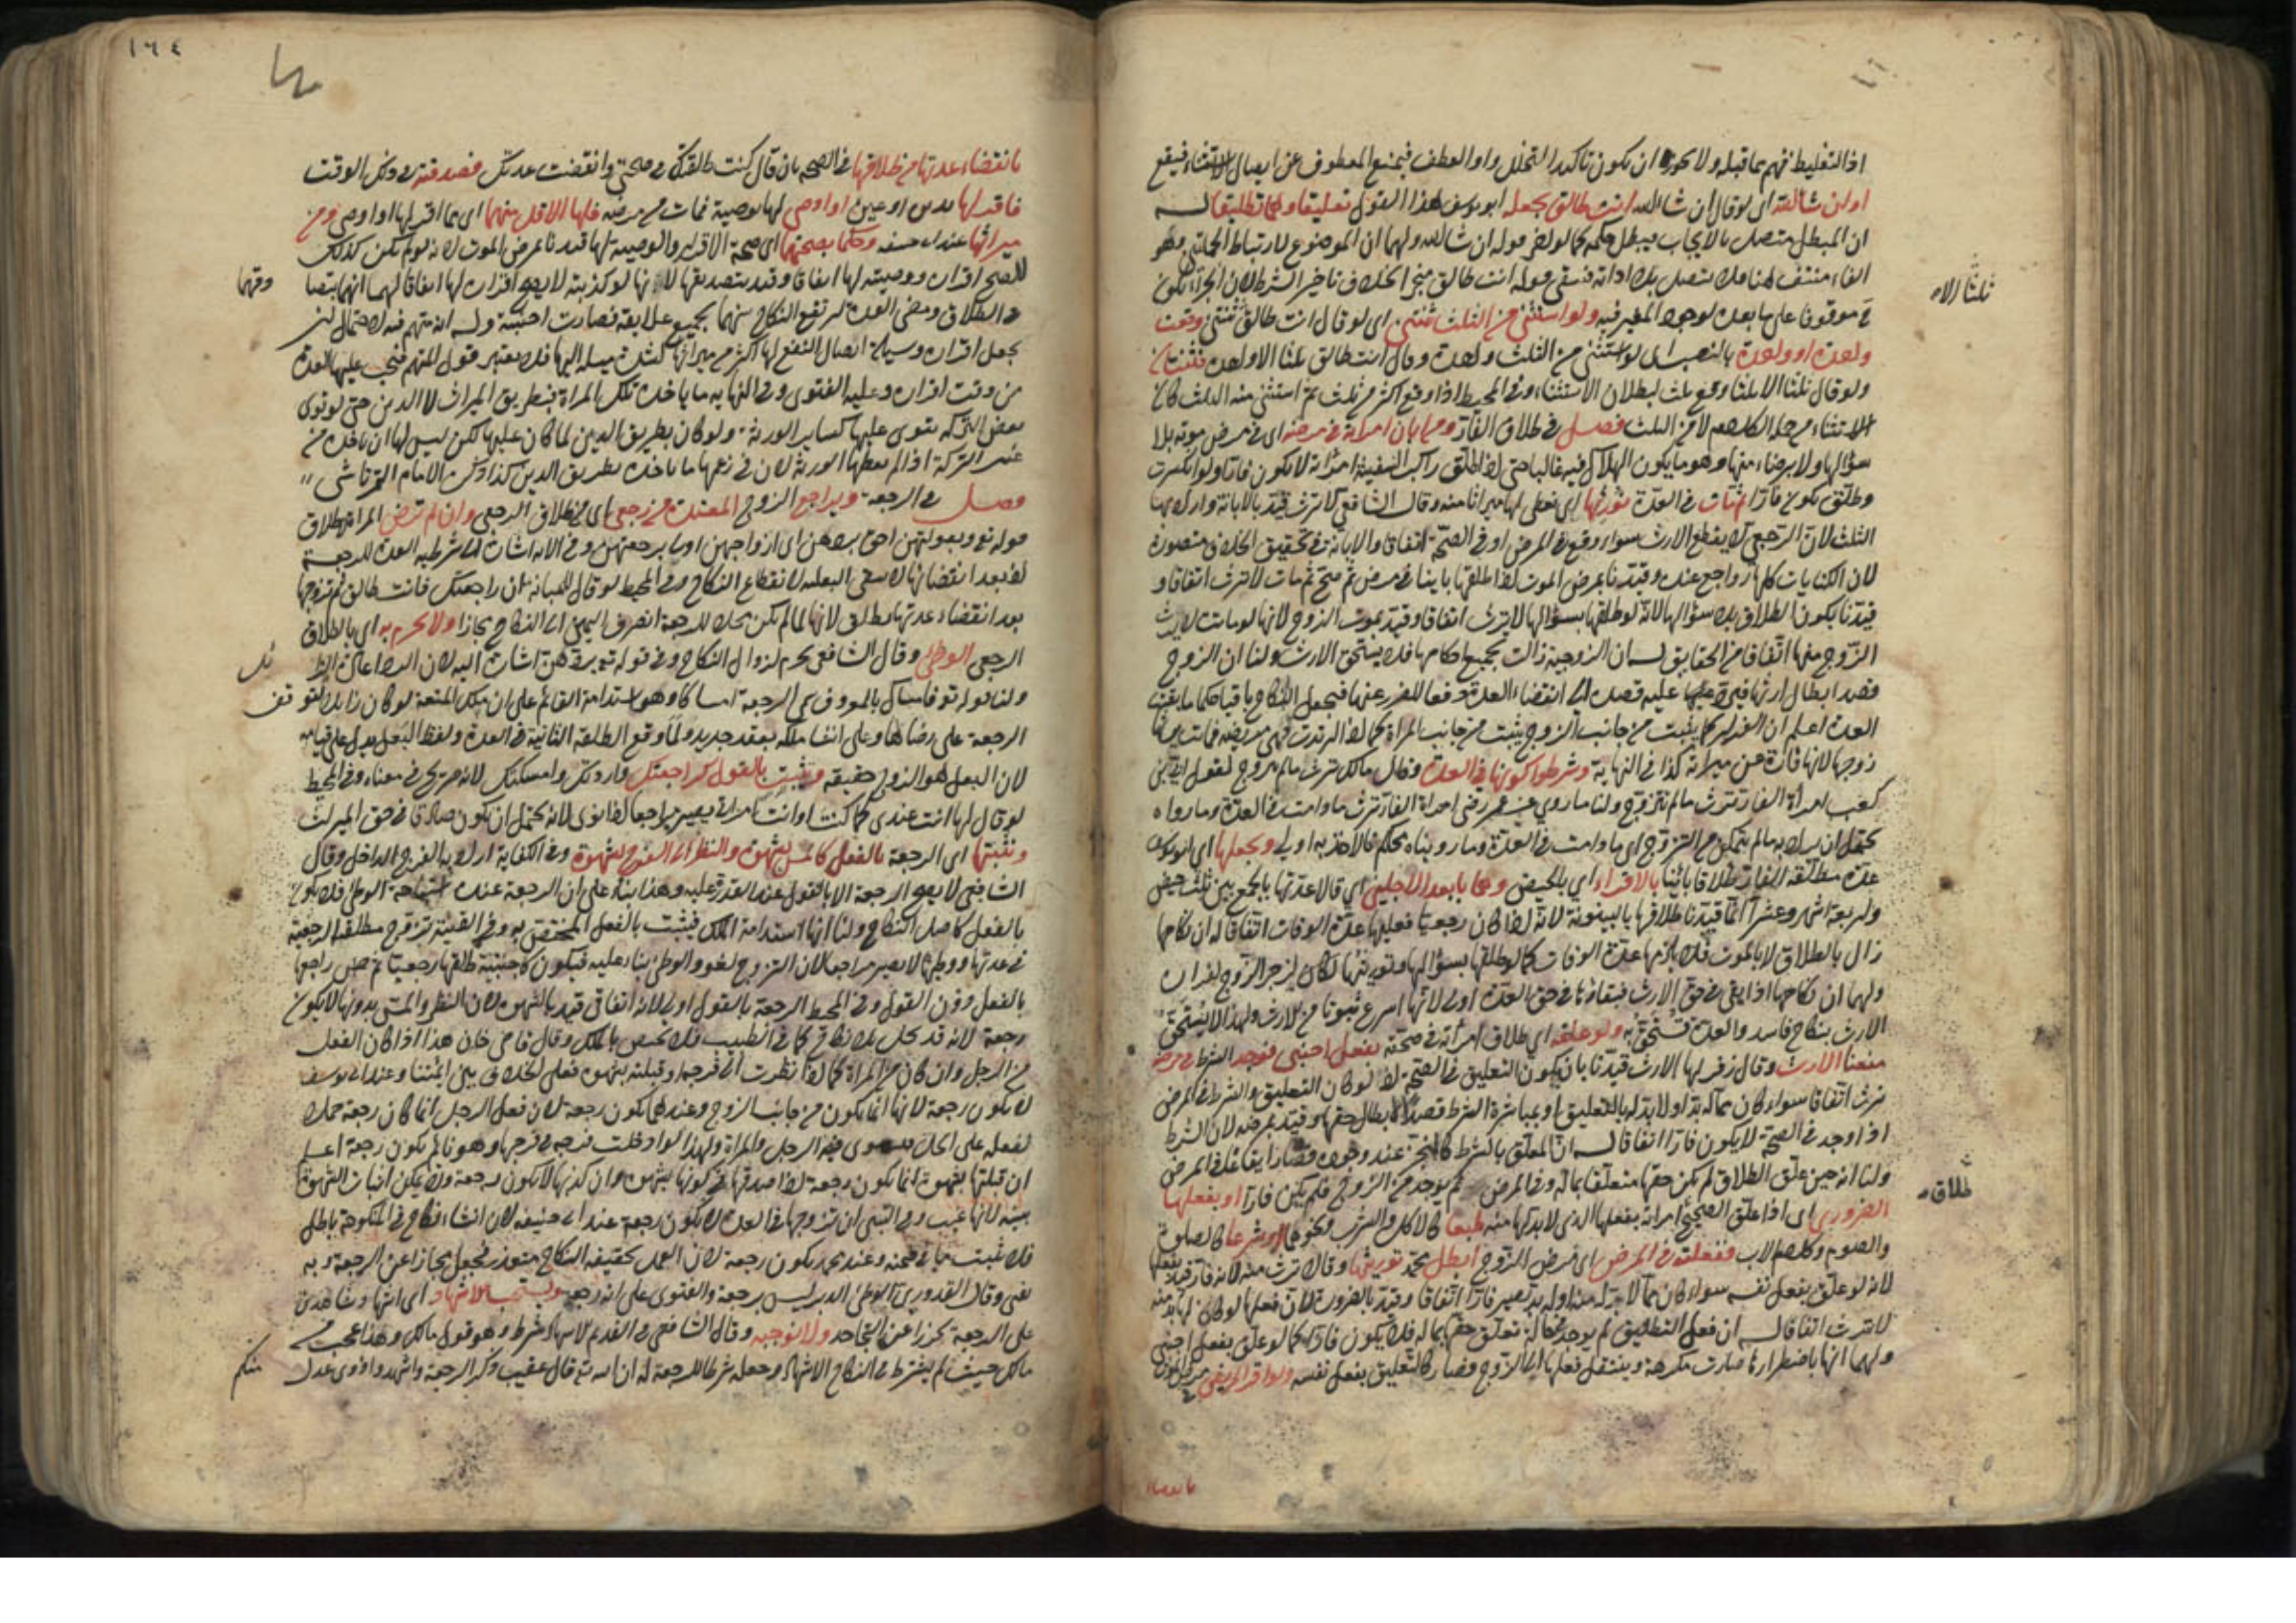 اذ التغليظ فهم بما قبله ولا يجوز ان يكون تاكيدا لتخلل واو العطف فيمنع المعطوف عن ايصال الاستثناء فيقع
اى لو قال ان شاء الله انت طالق يجعله ابو يوسف هذا القول تعليقا وهما تطليقا له
ان المبطل متصل بالايجاب فيبطل حكمه كما لو اخر قوله ان شاء الله ولهما ان الموضوع لارتباط الجملتين وهو
الفاء منتف هنا فلا يتصل بلا اداته فبقى قوله انت طالق منجزا بخلاف تاخير الشرط لان الجزاء يكون
موقوفا على ما بعده لوجود المغير فيه ولو استثنى من الثلث ثنتين اى لو قال انت طالق ثنتين وقعت
واحدة او واحدة بالنصب اى لو استثنى من الثلث واحدة وقال انت طالق ثلثا الا واحدة فثنتان
ولو قال ثلثا الا ثلثا وقع ثلث لبطلان الاستثناء وفى المحيط اذا اوقع اكثر من ثلث ثم استثنى منه الثلث كان
الاستثناء من جملة الكلام لا من الثلث فصل فى طلاق الفار ومن ابان امراته فى مرضه اى فى مرض موته بلا
سؤالها ولا برضاء منها وهو ما يكون الهلاك فيه غالبا حتى اذا طلق راكب السفينة امراته لا يكون فارا ولو انكسرت
وطلق يكون فارا فمات فى العدة نورثها اى نعطى لها ميراثا منه وقال الشافعى لا ترث قيد بالابانة واراد بها
الثلث لان الرجعى لا يقطع الارث سواء وقع فى المرض او فى الصحة اتفاقا والابانة فى تحقيق الخلاف متصورة
لان الكنايات كلها رواجع عنده وقيدنا بمرض الموت اذ لو طلقها باينا فى مرض ثم صح ثم مات لا ترث اتفاقا و
قيدنا بكون الطلاق بلا سؤالها لانه لو طلقها بسؤالها لا ترث اتفاقا وقيد بموت الزوج لانها لو ماتت لا يرث
الزوج منها اتفاقا من الحقايق له ان الزوجية زالت بجميع احكامها فلا يستحق الارث ولنا ان الزوج
قصد ابطال ارثها فيرد عليه قصده الى انقضاء العدة دفعا للضرر عنها فيجعل النكاح باقيا حكما ما بقيت
العدة اعلم ان الفرار كما يثبت من جانب الزوج يثبت من جانب المراة كما اذا ارتدت فهى مريضة فماتت
زوجها لانها فارة عن ميراثه كذا فى النهاية وشرطوا كونها فى العدة وقال مالك ترث ما لم تتزوج لقول ابى بن
كعب امراة الفار ترث ما لم تتزوج ولنا ما روى عن عمر رضى امراة الفار ترث ما دامت فى العدة وما رواه
يحتمل ان يراد به ما لم يتمكن من التزوج اى ما دامت فى العدة وما رويناه محكم فالاخذ به اولى ويجعلها اى ابو يوسف
عدة مطلقة الفار طلاقا باينا بالاقراء اى بالحيض وهما بابعد الاجلين اى قالا عدتها بالجمع بين ثلث حيض
واربعة اشهر وعشرا انما قيدنا طلاقها بالبينونة لانه اذا كان رجعيا فعليها عدة الوفات اتفاقا له ان نكاحها
زال بالطلاق لا بالموت فلا يلزمها عدة الوفات كما لو طلقها بسؤالها وتوريثها كان لزجر الزوج لفراره
ولهما ان نكاحها اذا بقى فى حق الارث فبقاؤها فى حق العدة اولى لانها اسرع ثبوتا من الارث ولهذا لا يستحق
الارث بنكاح فاسد والعدة تستحق به ولو علقه اى طلاق امراته فى صحته بفعل اجنبى فوجد الشرط فى مرضه
منعنا الارث وقال زفر لها الارث قيدنا بان يكون التعليق فى الصحة اذ لو كان التعليق والشرط فى المرض
ترث اتفاقا سواء كان مما له بد او لا بد له بالتعليق او بمباشرة الشرط قصد لابطال حقها وقيد بمرضه لان الشرط
اذا وجد فى الصحة لا يكون فارا اتفاقا له ان المعلق بالشرط كالمنجز عند وجوده فصار ايقاعا فى المرض
ولنا انه حين علق الطلاق لم يكن حقها متعلقا بماله وفى المرض لم يوجد من الزوج فلم يكن فارا او بفعلها
الضرورى اى اذا علق الصحيح امراته بفعلها الذى لا بد لها منه طبعا كالاكل والشرب ونحوهما او شرعا كالصلوة
والصوم وكلام الاب ففعلته فى المرض اى مرض الزوج ابطل محمد توريثها وقالا ترث منه لانه فار قيد بفعلها
لانه لو علق بفعل نفسه سواء كان مما لا بد له منه او له بد يصير فارا اتفاقا وقيد بالضرورة لان فعلها لو كان لها بد منه
لا ترث اتفاقا له ان فعل التطليق لم يوجد حال تعلق حقها بماله فلا يكون فارا كما لو علق بفعل اجنبى
ولهما انها باضطرارها صارت مكرهة وينتقل فعلها الى الزوج فصار كالتعليق بفعل نفسه ولو اقر المريض
ثلثا الا
طلاق
بانقضاء
١٦٤
بانقضاء عدتها من طلاقها فى الصحة بان قال كنت طالقتك فى صحتى وانقضت عدتك فصدقته فى ذلك الوقت
فاقر لها بدين او عين او اوصى لها بوصية فمات من مرضه فلها الاقل منهما اى مما اقر لها او اوصى ومن
ميراثها عند ابى حنيفة وحكما بصحتهما اى صحة الاقرار والوصية لها قيدنا بمرض الموت لانه لو لم يكن كذلك
لصح اقراره ووصيته لها اتفاقا وقيد بتصديقها لانها لو كذبته لا يصح اقراره لها اتفاقا لهما انهما بتصا
دقهما
على الطلاق ومضى العدة ارتفع النكاح بينهما بجميع علايقه فصارت اجنبية وله انه متهم فيه لاحتمال ان
يجعل اقراره وسيلة ايصال النفع لها اكثر من ميراثها لشدة ميله اليها فلا يعتبر قول المتهم فيجب عليها العدة
من وقت اقراره وعليه الفتوى وفى النهاية ما ياخذه تلك المراة فبطريق الميراث لا الدين حتى لو توى
بعض التركة يتوى عليها كساير الورثة ولو كان بطريق الدين لما كان عليها لكن ليس لها ان ياخذ من
عين التركة اذا لم يعطها الورثة لان فى زعمها ما ياخذه بطريق الدين كذا ذكره الامام التمرتاشى
فصل فى الرجعة ويراجع الزوج المعتدة من رجعى اى من طلاق الرجعى وان لم ترض المراة لاطلاق
قوله تع وبعولتهن احق بردهن اى ازواجهن اولى برجعتهن وفى الاية اشارة الى شرطية العدة للرجعة
اذ بعد انقضائها لا يبقى البعلية لانقطاع النكاح وفى المحيط لو قال للمبانة ان راجعتك فانت طالق ثم تزوجها
بعد انقضاء عدتها تطلق لانها لما لم تكن محلا للرجعة انصرف اليمين الى النكاح مجازا ولا يحرم به اى بالطلاق
الرجعى الوطى وقال الشافعى يحرم لزوال النكاح وفى قوله تع بردهن اشارة اليه لان الرد اعادة الزا
ئل
ولنا قوله تع فامساك بالمعروف سمى الرجعة امساكا وهو استدامة القائم على ان ملك المتعة لو كان زايلا لتوقف
الرجعة على رضاها وعلى انشاء ملكه بعقد جديد ولما وقع الطلقة الثانية فى العدة ولفظ البعل يدل على قيامه
لان البعل هو الزوج حقيقة ويثبت بالقول كراجعتك وارددتك وامسكتك لانه صريح فى معناه وفى المحيط
لو قال لها انت عندى كما كنت او انت امراتى يصير مراجعا اذا نوى لانه يحتمل ان يكون صادقا فى حق الميراث
ونثبتها اى الرجعة بالفعل كالمس بشهوة والنظر الى الفرج بشهوة وفى الكفاية اراد به الفرج الداخل وقال
الشافعى لا يصح الرجعة الا بالقول عند القدرة عليه وهذا بناء على ان الرجعة عنده استباحة الوطى فلا يكون
بالفعل كاصل النكاح ولنا انها استدامة الملك فيثبت بالفعل المختص به وفى القنية تزوج مطلقة الرجعية
فى عدتها ووطئها لا يصير مراجعا لان التزوج لغو والوطئ بناء عليه فيكون كاجنبية طلقها رجعيا ثم جن راجعها
بالفعل دون القول وفى المحيط الرجعة بالقول اولى لانه اتفاقى قيد بالشهوة لان النظر والمس بدونها لا يكون
رجعة لانه قد يحل بلا نكاح كما فى الطبيب فلا يختص بالملك وقال قاضى خان هذا اذا كان الفعل
من الرجل وان كان من المراة كما اذا نظرت الى فرجه او قبلته بشهوة فعلى الخلاف بين ائمتنا وعند ابى يوسف
لا يكون رجعة لانها انما يكون من جانب الزوج وعندهما يكون رجعة لان فعل الرجل انما كان رجعة حملا
لفعله على الحل ويستوى فيه الرجل والمراة ولهذا لو ادخلت فرجه فى فرجها وهو نائم يكون رجعة اعلم
ان قبلتها بشهوة انما يكون رجعة اذا صدقها فى كونها بشهوة وان كذبها لا يكون رجعة ولا يمكن اثبات الشهوة
ببينة لانها غيب وفى التبيين ان تزوجها فى العدة لا يكون رجعة عند ابى حنيفة لان انشاء نكاح فى المنكوحة باطل
فلا يثبت ما فى ضمنه وعند محمد يكون رجعة لان العمل بحقيقة النكاح متعذر فيجعل مجازا عن الرجعة وبه
يفتى وقال القدورى الوطئ الدبر ليس برجعة والفتوى على انه رجعة ويستحب الاشهاد اى اشهاد شاهدين
على الرجعة تحرزا عن التجاحد ولا نوجبه وقال الشافعى فى القديم الاشهاد شرط وهو قول مالك وهذا عجب من
مالك حيث لم يشترط فى النكاح الاشهاد وجعله شرطا للرجعة له ان الله تع قال عقيب ذكر الرجعة واشهدوا ذوى عدل
منكم